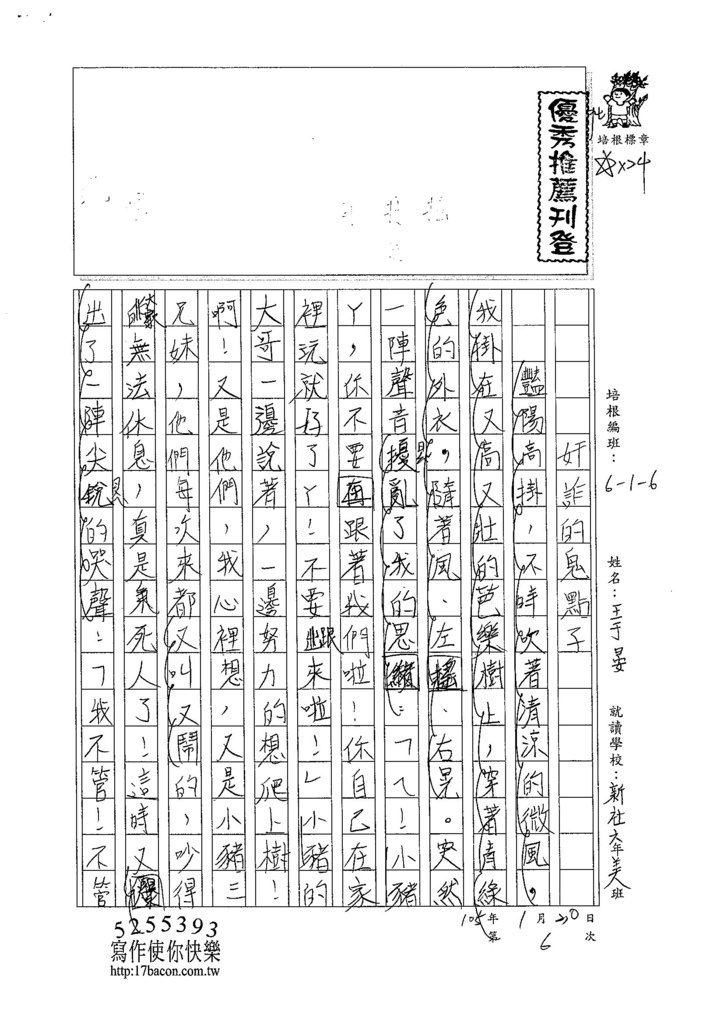 優秀推薦刊登
培根標章
培根編班：6-1-6
姓名：王于晏
就讀學校：新社六年美班
105年1月20日
第6次
奸詐的鬼點子
豔陽高掛，不時吹著清涼的微風，
我掛在又高又壯的芭樂樹上，穿著青綠
色的外衣，隨著風，左搖、右晃。突然
一陣聲音擾亂了我的思緒：「ㄟ！小豬
ㄚ，你不要再跟著我們啦！你自己在家
裡玩就好了ㄚ！不要跟來啦！」小豬的
大哥一邊說著，一邊努力的想爬上樹！
啊！又是他們，我心裡想，又是小豬三
兄妹，他們每次來都又叫又鬧的，吵得
無法休息，真是氣死人了！這時又
出了一陣尖銳的哭聲！「我不管！不管
5255393
寫作使你快樂
http:17bacon.com.tw